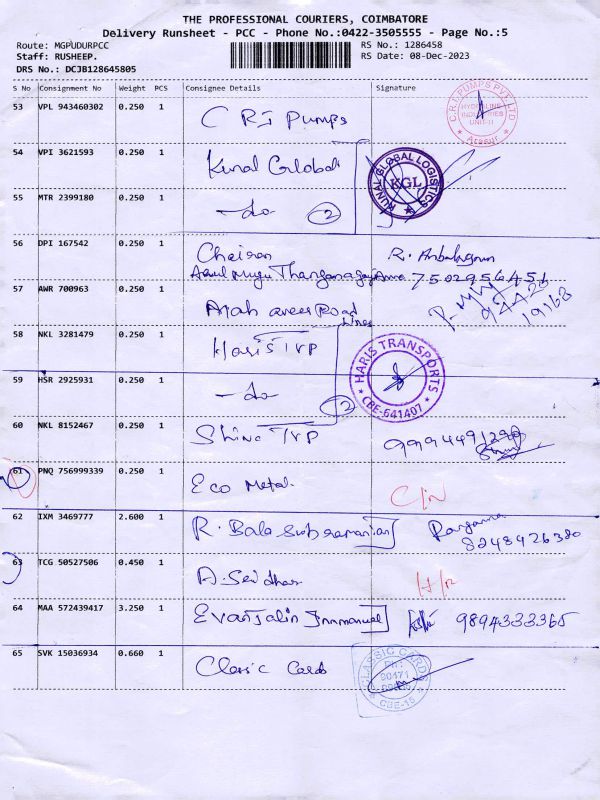 THE PROFESSIONAL COURIERS, COIMBATORE
Delivery Runsheet - PCC - Phone No.:0422-3505555 - Page No.:5
Route: MGPUDURPCC
RS No.: 1286458
Staff: RUSHEEP.
RS Date: 08-Dec-2023
DRS No.: DCJB128645805
S No Consignment No Weight PCS Consignee Details Signature
53 VPL 943460302 0.250 1 C R I Pumps
C.R.I. PUMPS PVT LTD
INDUSTRIES
UNIT-II
Arasur
54 VPI 3621593 0.250 1 Kunal Global
KUNAL GLOBAL LOGISTICS
KGL
55 MTR 2399180 0.250 1 -do 2
56 DPI 167542 0.250 1 Chairan R.
7502956451
57 AWR 700963 0.250 1 Road
19168
58 NKL 3281479 0.250 1 Haris TVP
HARIS TRANSPORTS
CBE-641407
59 HSR 2925931 0.250 1 -do 2
60 NKL 8152467 0.250 1 Shine TVP
61 PNQ 756999339 0.250 1 Eco Metal
62 IXM 3469777 2.600 1 R. Bala Subramanian
8248426380
63 TCG 50527506 0.450 1 A. Sridhar
64 MAA 572439417 3.250 1 Evanjalin Immanuel 9894333365
65 SVK 15036934 0.660 1 Classic Cards
CLASSIC CARDS
PH:
90471
CBE-15